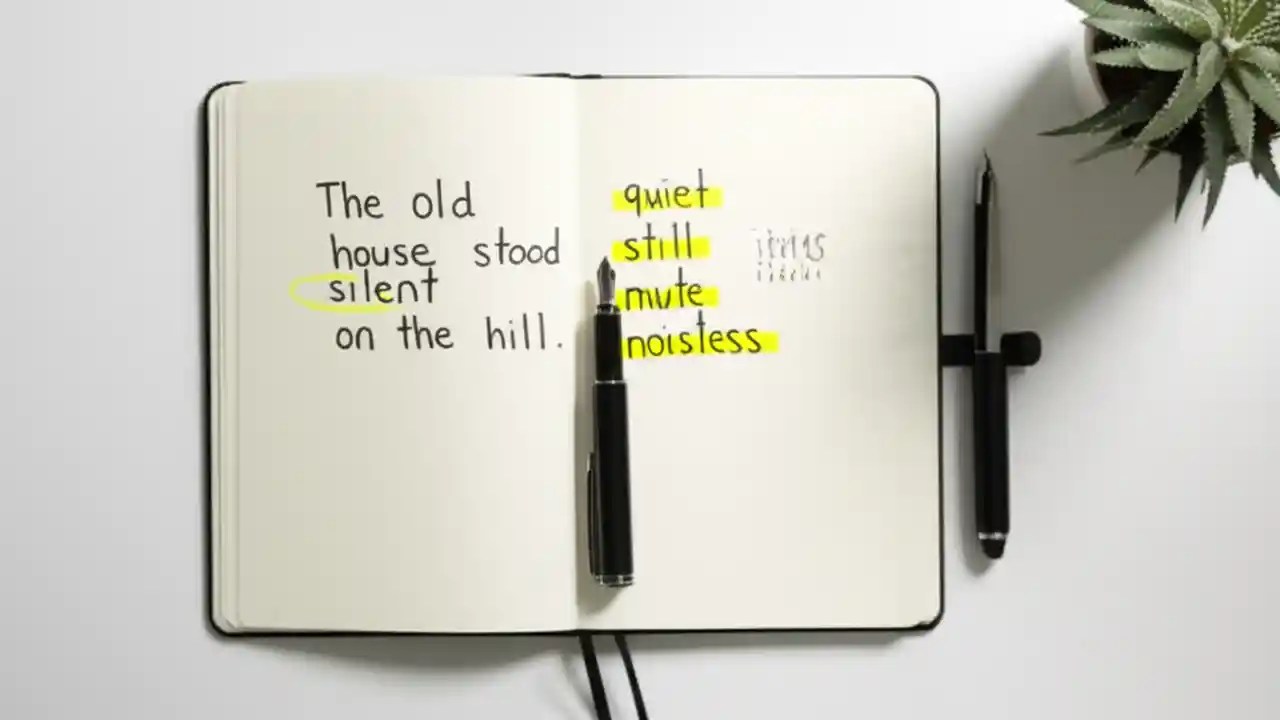 The old
house stood
silent
on the hill.
quiet
still
mute
noistess